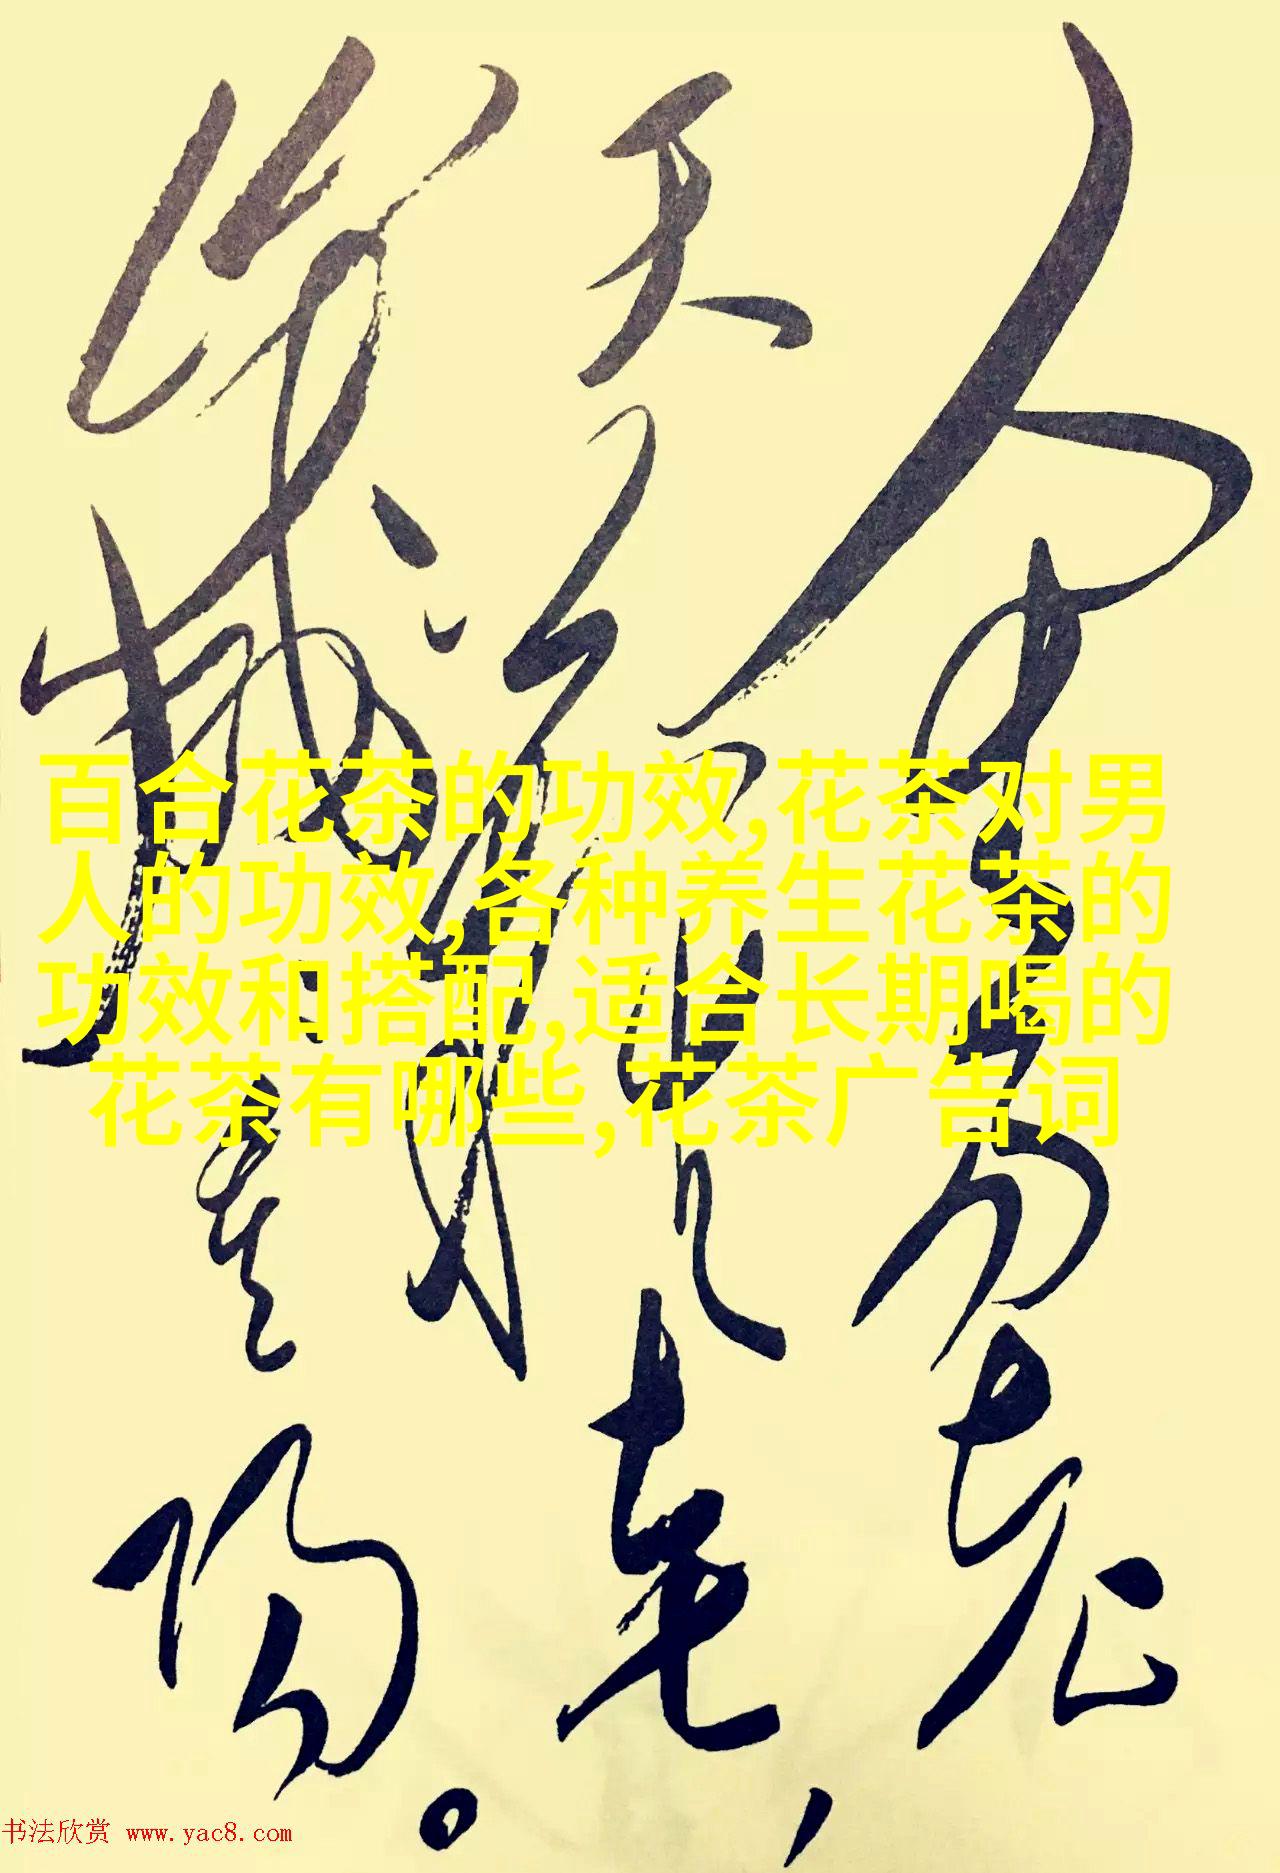 人生易老
天難老，
歲歲重陽。
百合花茶的功效,花茶对男
人的功效,各种养生花茶的
功效和搭配,适合长期喝的
花茶有哪些,花茶广告词
书法欣赏 www.yac8.com